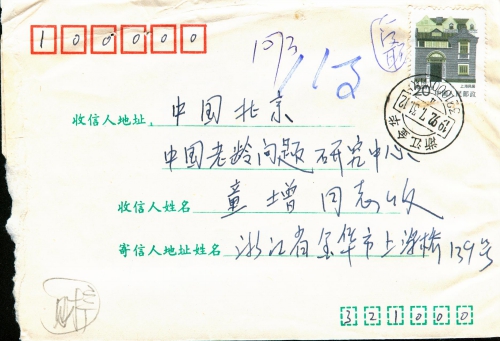 100000
20
上海民居
中国邮政
浙江金华
收信人地址 中国北京
中国老龄问题研究中心
收信人姓名 童增同志收
寄信人地址姓名 浙江省金华市上浮桥139号
321000